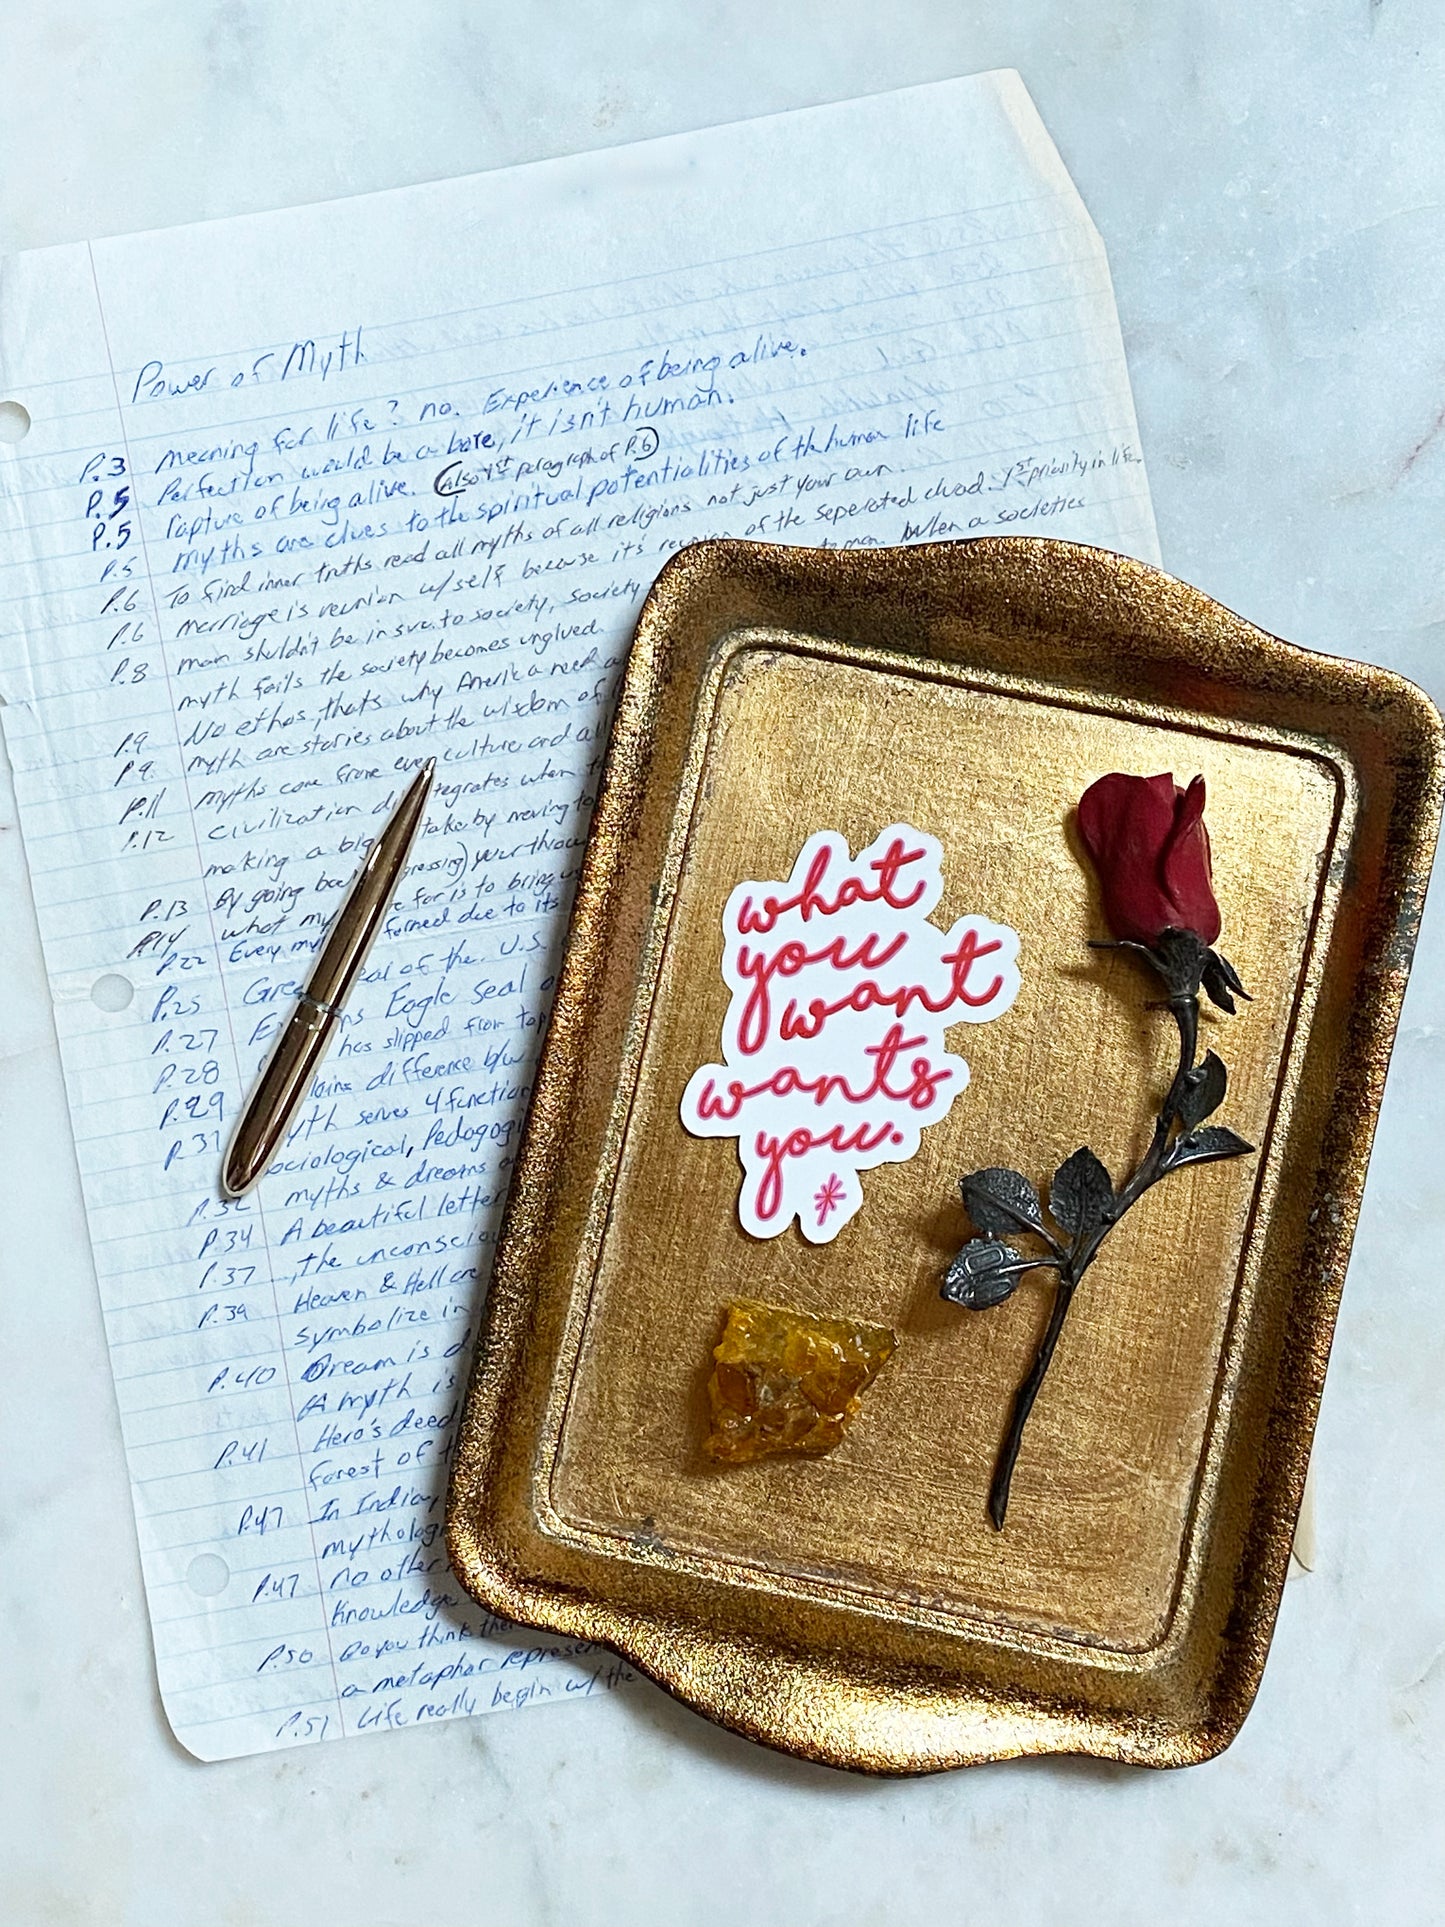 Power of Myth
P.3 meaning for life? no. Experience of being alive.
P.5 Perfection would be a bore, it isn't human.
P.5 rapture of being alive. (also 1st paragraph of P.6)
P.5 myths are clues to the spiritual potentialities of the human life
P.6 To find inner truths read all myths of all religions not just your own.
P.6 marriage is reunion w/self because it's reunion of the seperated duad. 1st priority in life.
P.8 man shuldn't be in svc. to society, society to man. When a societies
myth fails the society becomes unglued.
P.9 No ethos, thats why America need
P.9 myth are stories about the wisdom of
P.11 myths come frome every culture and all
P.12 civilization di tegrates when
making a big take by moving to
P.13 By going bac pressing) your
P.14 what my e for is to bring
P.22 Every my formed due to its
P.25 Gre eal of the U.S.
P.27 E ns Eagle seal
P.28 has slipped from top
P.29 lains difference b/w
P.31 yth serves 4 function
ociological, Pedagogi
P.32 myths & dreams
P.34 A beautiful letter
P.37 the unconsciou
P.39 Heaven & Hell are
symbolize in
P.40 Dream is
A myth is
P.41 Hero's deed
forest of
P.47 In India,
mytholog
P.47 no other
Knowledge
P.50 Do you think ther
a metaphor represen
P.51 Life really begin w/ the
what
you
want
wants
you.